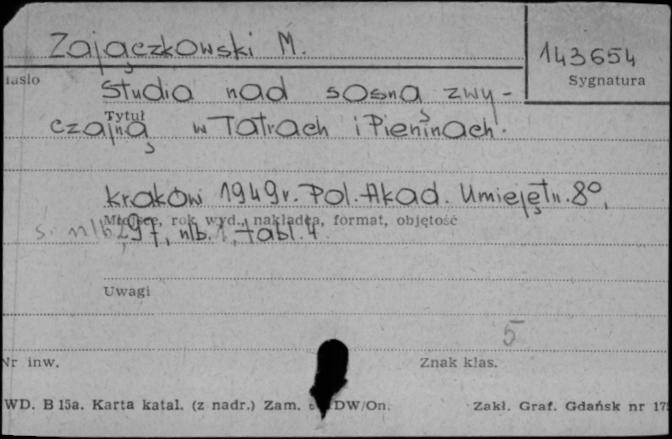 Zajączkowski M.
143654
Sygnatura
Studia nad sosną zwy-
Tytuł
czajną w Tatrach i Pieninach.
Kraków 1949r. Pol. Akad. Umiejętn. 8°,
Miejsce, rok wyd., nakładca, format, objętość
s. nlb 2, 97, nlb. 1, tabl. 4
Uwagi
5
Nr inw. Znak klas.
WD. B 15a. Karta katal. (z nadr.) Zam. DW/On. Zakł. Graf. Gdańsk nr